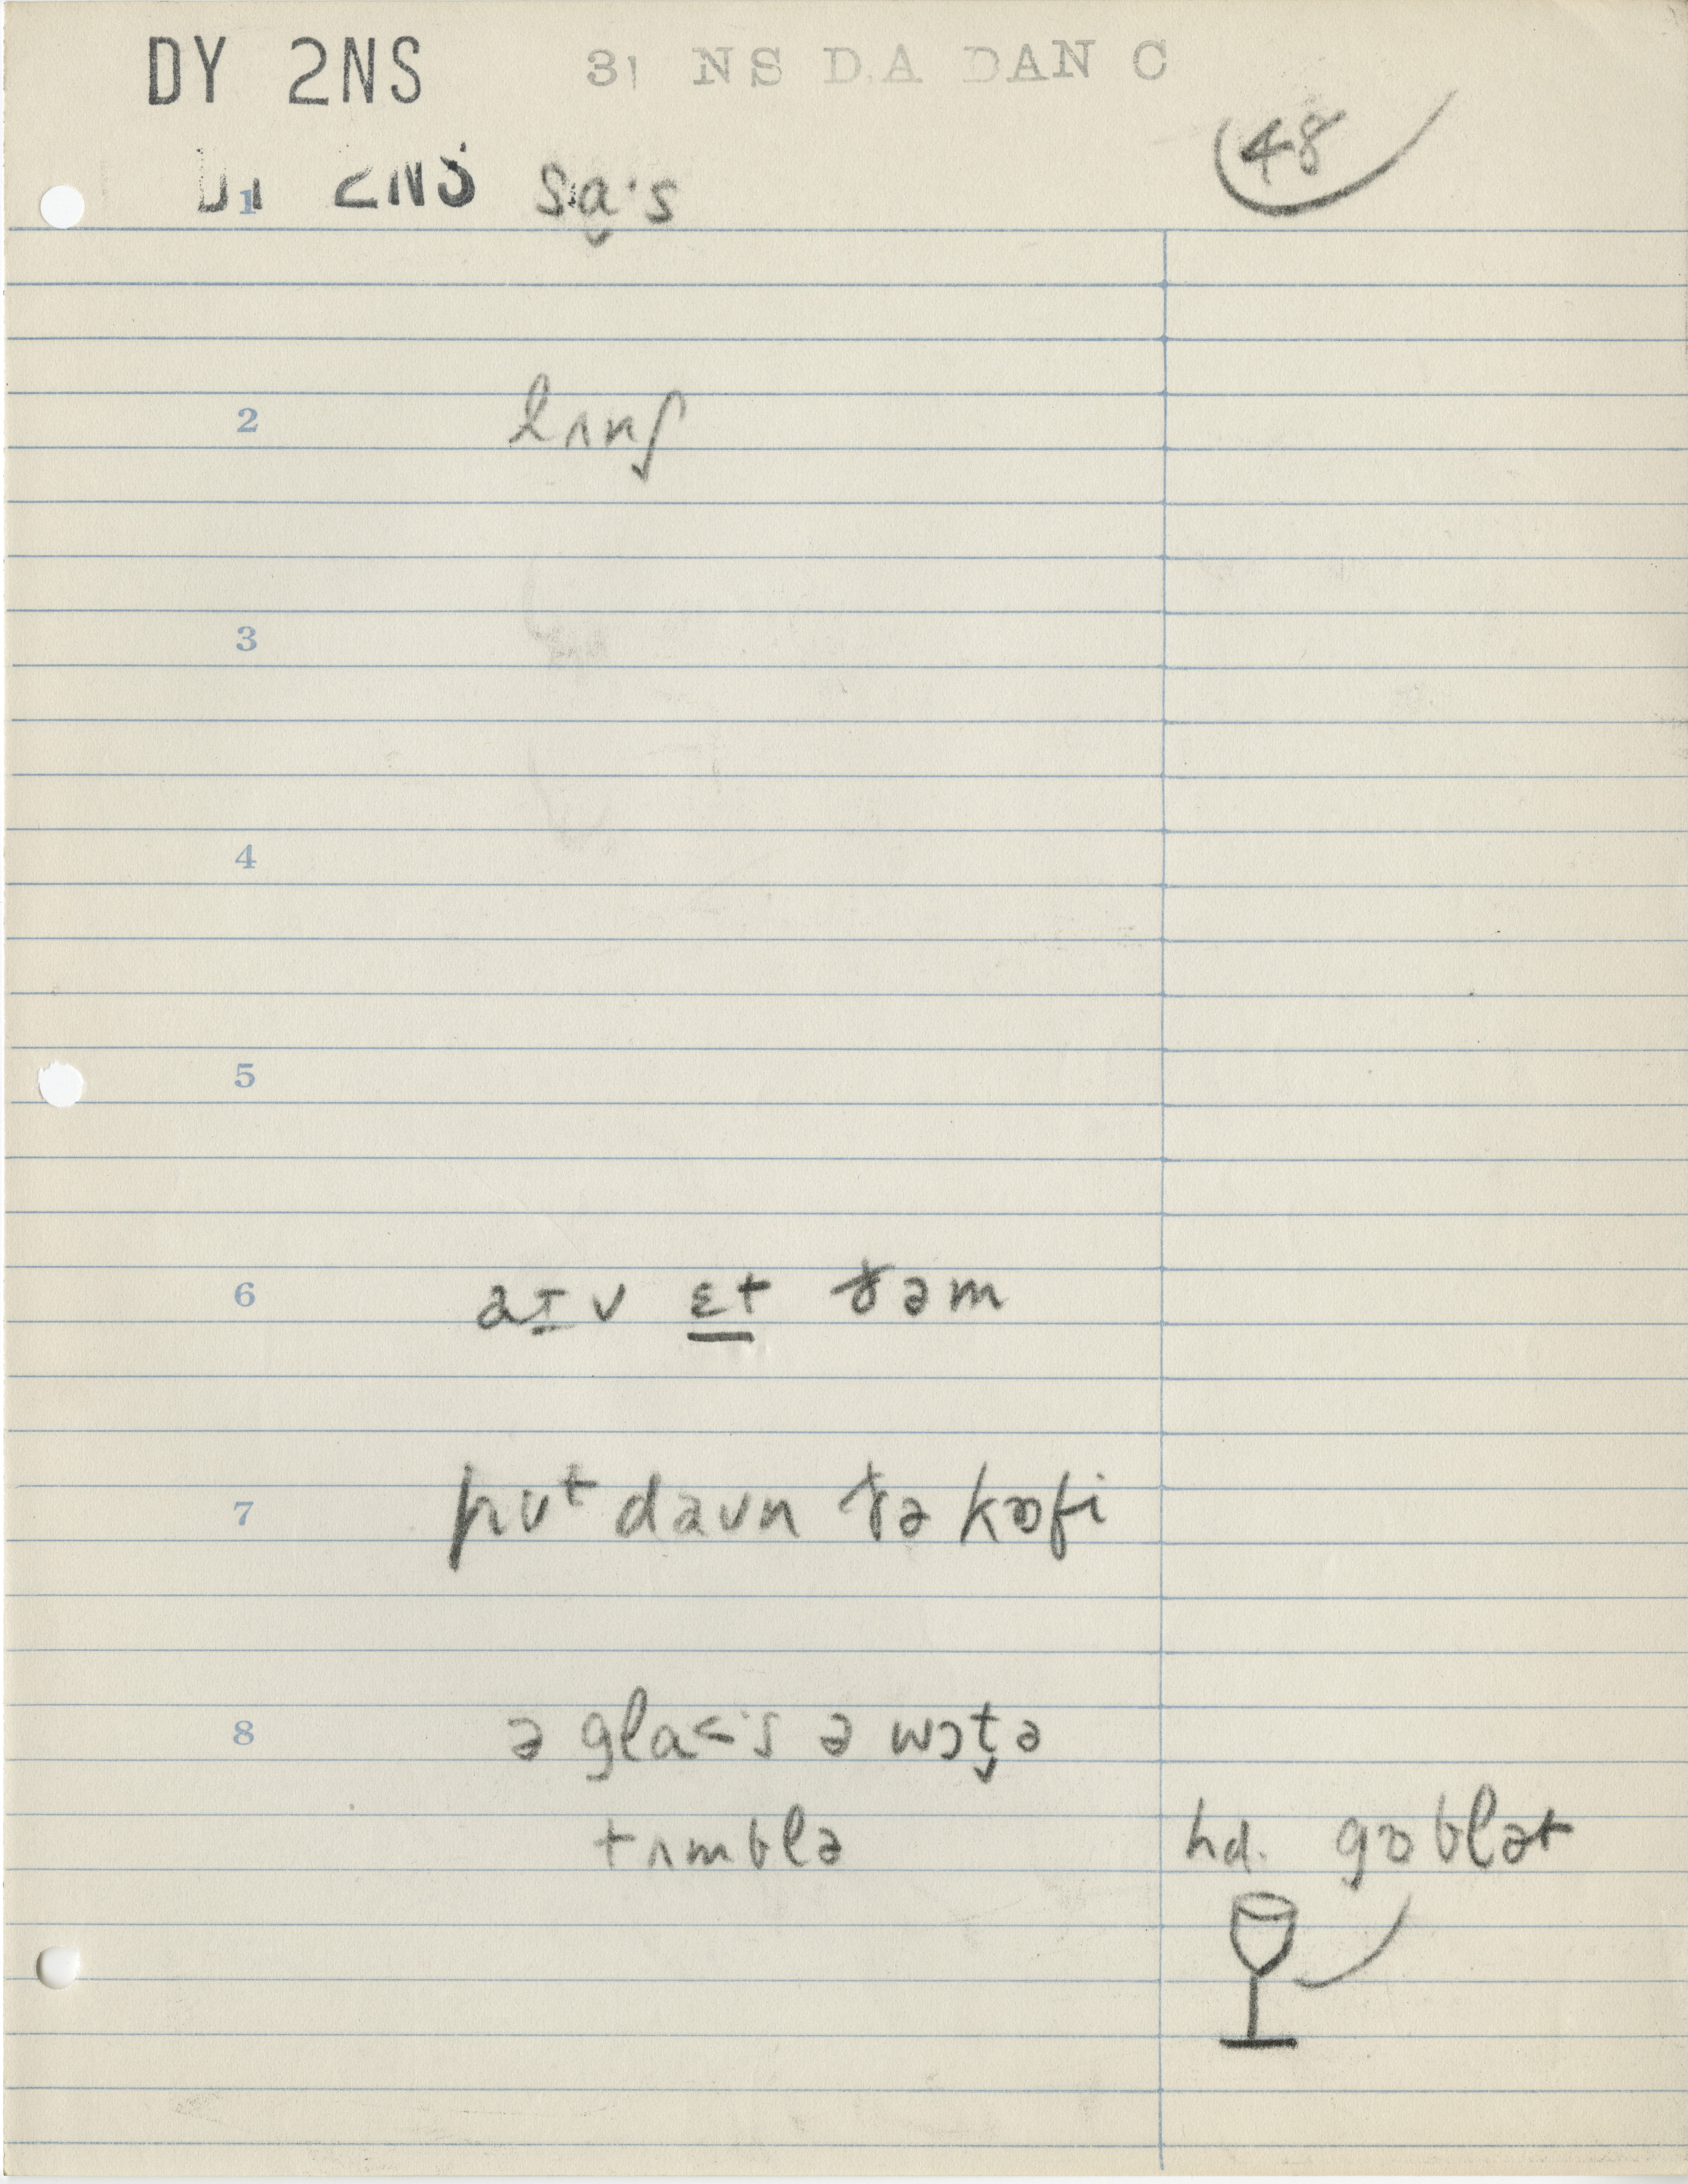 DY 2NS 31 NS DA DAN C
48
DY 2NS
1 sa̬·s
2 lʌnʃ
3
4
5
6 aɪv ɛt ðəm
7 pʊt daʊn ðə kɒfi
8 ə gla<·s ə wɔt̬ə
tʌmblə hd. gɒblət